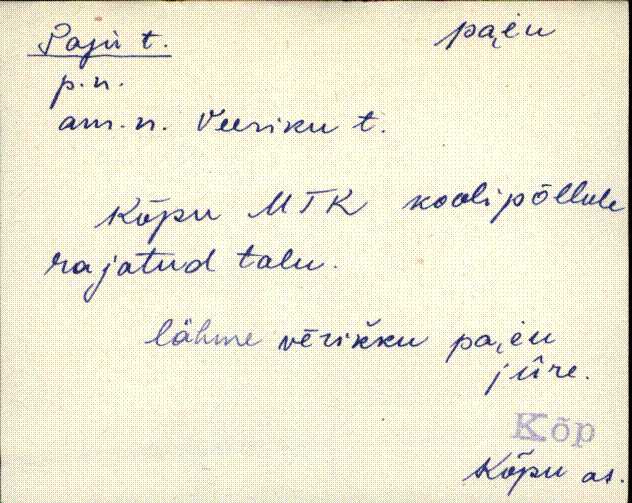 Paju t. pai̯u
p.n.
am.n. Veeriku t.
Kõpu MTK koolipõllule
rajatud talu.
lähme vērikku pai̯u
jûre.
Kõp
Kõpu as.